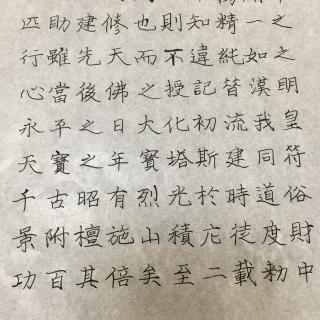 匹助建修也則知精一之
行雖先天而不違純如之
心當後佛之授記昔漢明
永平之日大化初流我皇
天寶之年寶塔斯建同符
千古昭有烈光於時道俗
景附檀施山積庀徒度財
功百其倍矣至二載勑中